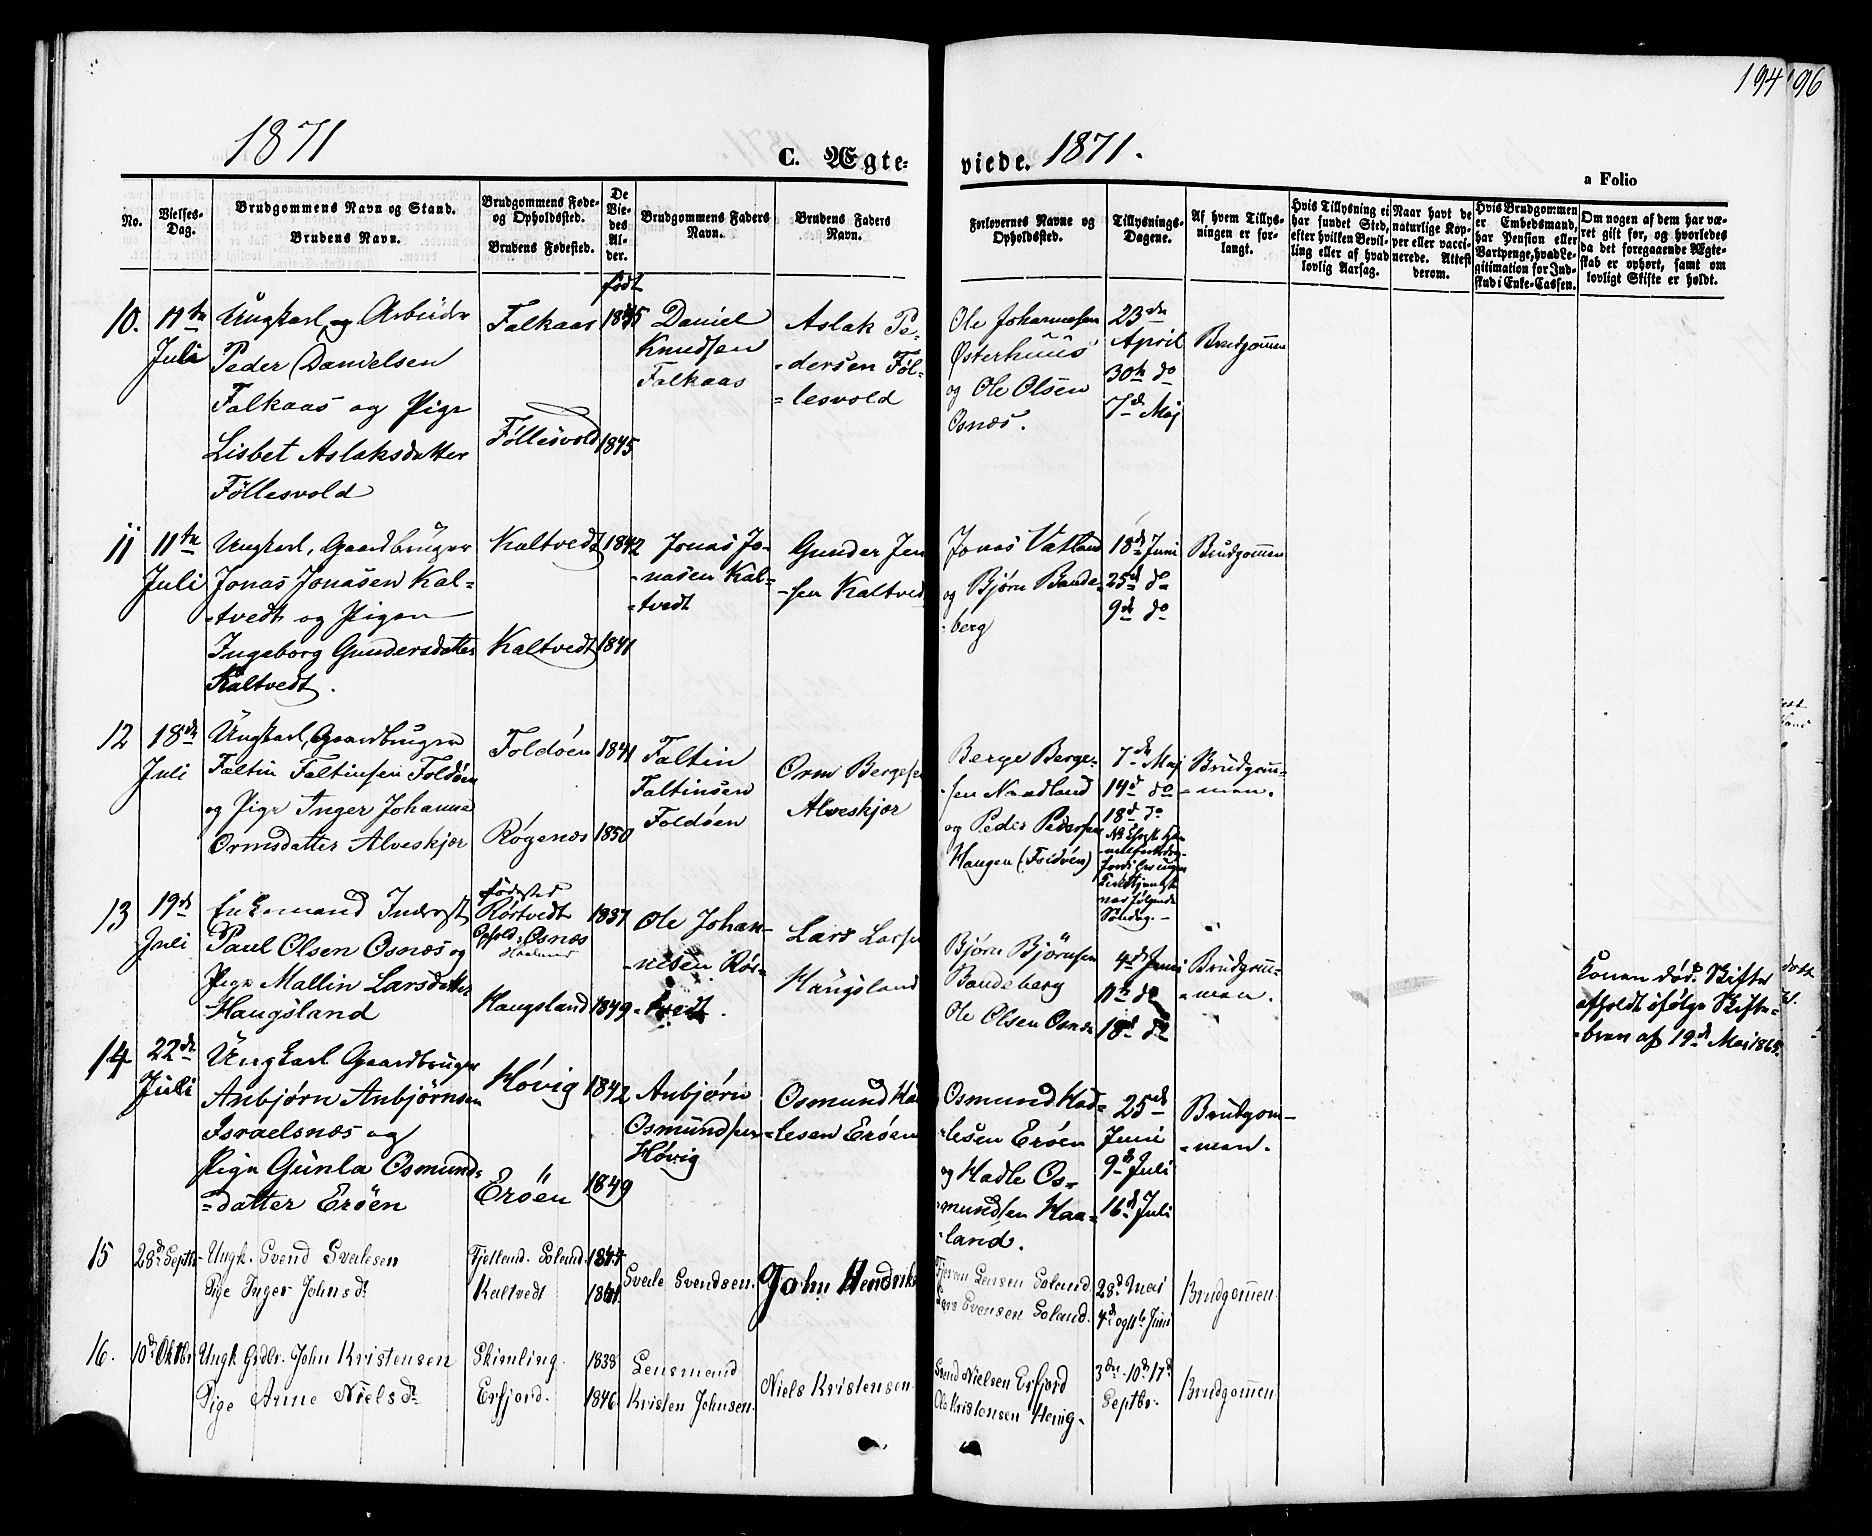 194
96
1871
C. Ægte-
viede. 1871.
a Folio
No.
Vielses-
Dag.
Brudgommens Navn og Stand.
Brudens Navn.
Brudgommens Føde-
og Opholdssted.
Brudens Fødested.
De
Vie-
des
Al-
der.
født
Brudgommens Faders
Navn.
Brudens Faders
Navn.
Forlovernes Navne og
Opholdssted.
Tillysnings-
Dagene.
Af hvem Tillys-
ningen er for-
langt.
Hvis Tillysning ei
har fundet Sted,
efter hvilken Bevil-
ling eller af hvad
lovlig Aarsag.
Naar havt de
naturlige Kop-
per eller vacci-
nerede. Attest
derom.
Hvis Brudgommen
er Embedsmand,
har Pension eller
Vartpenge, hvad Le-
gitimation for Ind-
skud i Enke-Cassen.
Om nogen af dem har væ-
ret gift før, og hvorledes
da det foregaaende Ægte-
skab er ophørt, samt om
lovligt Skifte er holdt.
10.
11te
Juli
Ungkarl og Arbeider
Peder Danielsen
Falkaas og Pige
Lisbet Aslaksdatter
Föllesvold
Falkaas
Föllesvold
1845
1845
Daniel
Knudsen
Falkaas
Aslak Pe-
-dersen Föl-
-lesvold
Ole Johannesen
Østerhuus
og Ole Olsen
Osnæs.
23de
April
30te do
7de Maj
Brudgommen
11
11te
Juli
Ungkarl, Gaardbruger
Jonas Jonasen Kal-
-tvedt og Pigen
Ingeborg Gundersdatter
Kaltvedt.
Kaltvedt
Kaltvedt
1842
1841
Jonas Jo-
-nasen Kal-
-tvedt
Gunder Jen
-sen Kaltvedt
Jonas Vatland
og Bjørn Bande-
-berg
18de Juni
25de do
9de do
Brudgommen
12
18de
Juli
Ungkarl, Gaardbruger
Faltin Faltinsen Foldöen
og Pige Inger Johanna
Ormsdatter Alveskjær
Foldöen
Røgenæs
1841
1850
Faltin
Faltinsen
Foldöen
Orm Bergesen
Alveskjær
Berge Berge-
-sen Nordland
og Peder Pedersen
Haugen
7de Maj
14de do
18de do
Søndag.
Brudgom-
-men.
13
19de
Juli
Enkemand Inderst
Paul Olsen Osnæs og
Pige Mallin Larsdatter
Haugsland
Fødested
Rørtvedt
Ophold: Osnæs
Haugsland
1837
1849
Ole Johan-
-nesen Rør-
-tvedt.
Lars Larsen
Haugsland
Bjørn Bjørnsen
Bandeberg
Ole Olsen Osnæs
4de Juni
11te do
18de do
Brudgom-
-men.
Konen död. Skifte
afholdt ifølge Skifte-
-brev af 19de Mai 1865.
14
22de
Juli
Ungkarl Gaardbruger
Anbjørn Anbjørnsen
Israelsnæs og
Pige Gunla Osmund-
-datter Eröen
Hövig
Eröen
1842
1849
Anbjørn
Osmundsen
Hövig
Osmund Had
-lesen Eröen
Osmund Had-
-lesen Eröen
og Hadle Os-
-mundsen Haa-
-land.
25de
Juni
9de Juli
16de Juli
Brudgom-
-men.
15
28de Septbr
Ungk. Svend Sveilesen
Pige Inger Johnsdr
Fjelland. Soland.
Kaltvedt
1844
1841
Sveile Svendsen.
John Hendriks
Lensen Soland.
Lars Evensen Soland.
28de Mai
4de og 11te Juni
Brudgommen
16.
10de Oktbr
Ungk Grdbr. John Kristensen
Pige Anne Nielsdr
Skimling.
Erfjord.
1838
1846
Lensmand
Kristen Johnsen.
Niels Kristensen.
Svend Nielsen Erfjord
Ole Kristensen Hevig-
3die 10de 17de
Septbr.
Brudgommen